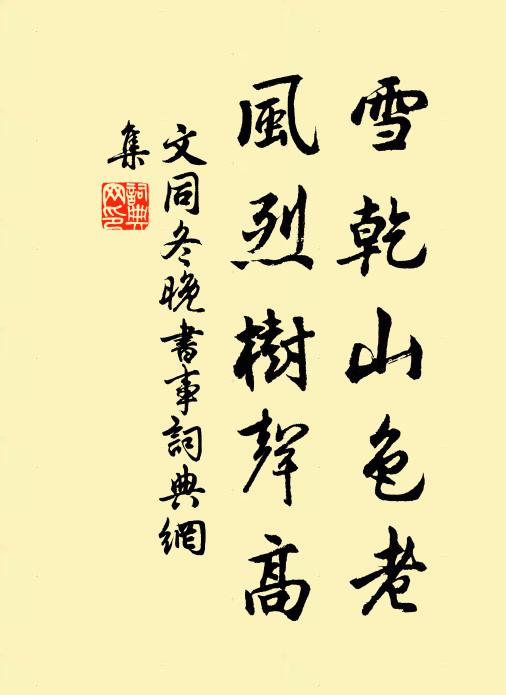 雪乾山色老
風烈樹聲高
文同冬晚書事詞典網
集
詞典
网印